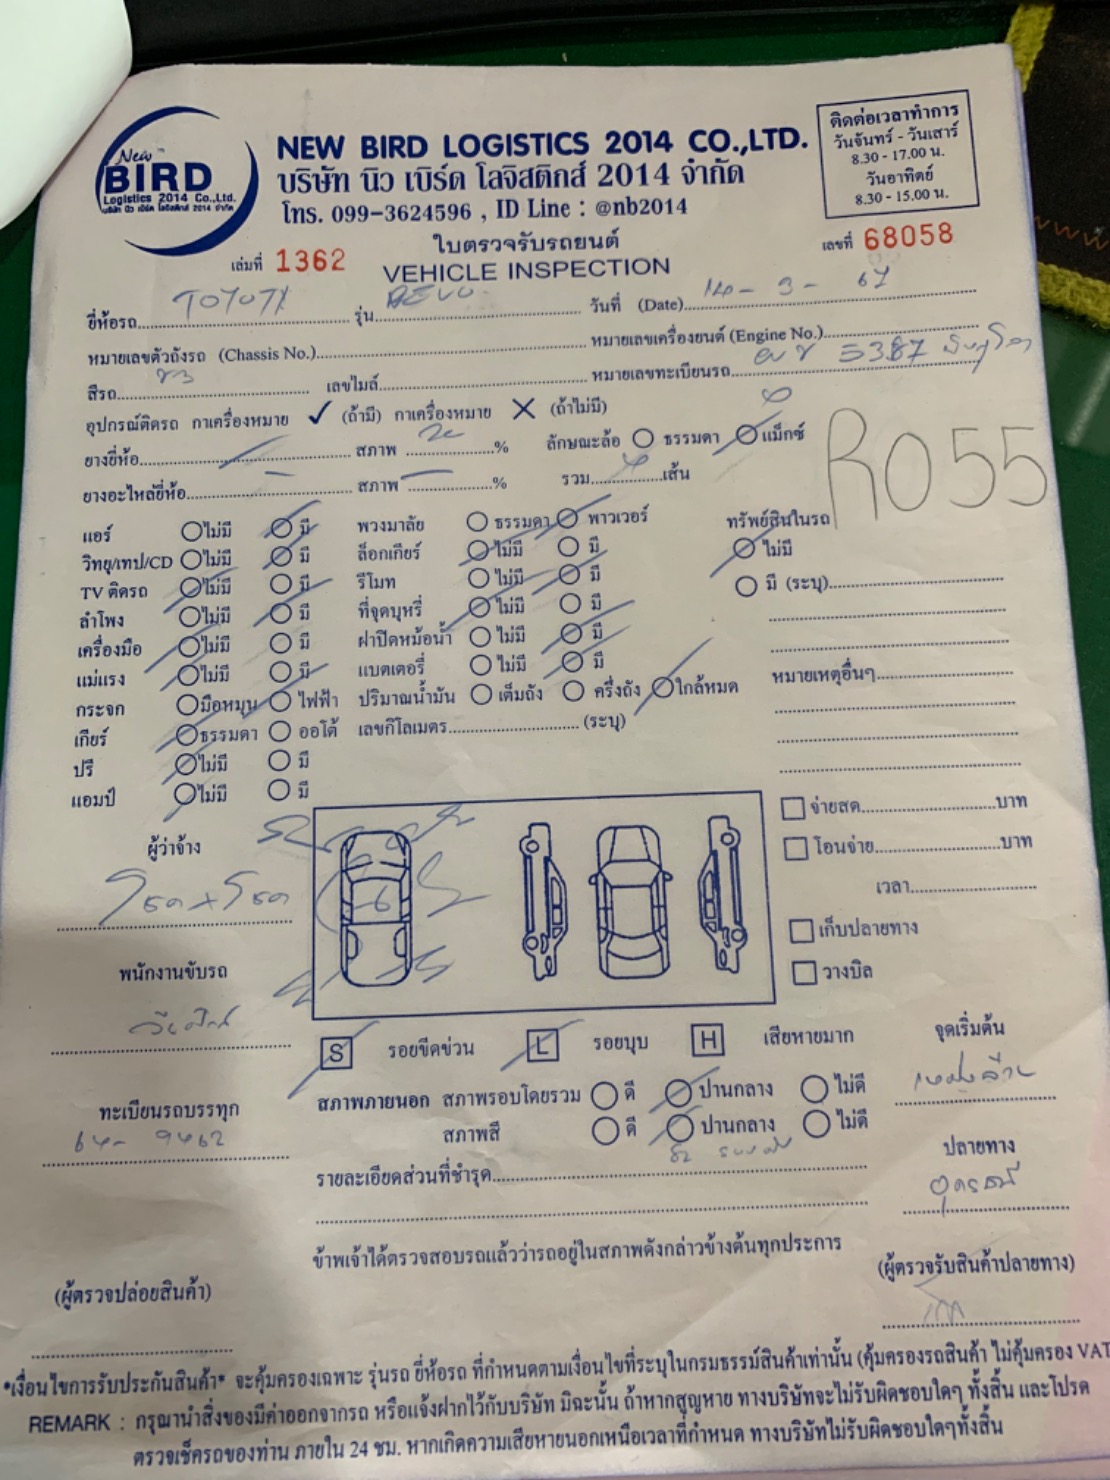 New
BIRD
Logistics 2014 Co.,Ltd.
บริษัท นิว เบิร์ด โลจิสติกส์ 2014 จำกัด
NEW BIRD LOGISTICS 2014 CO.,LTD.
บริษัท นิว เบิร์ด โลจิสติกส์ 2014 จำกัด
โทร. 099-3624596 , ID Line : @nb2014
ติดต่อเวลาทำการ
วันจันทร์ - วันเสาร์
8.30 - 17.00 น.
วันอาทิตย์
8.30 - 15.00 น.
ใบตรวจรับรถยนต์
เล่มที่ 1362
VEHICLE INSPECTION
เลขที่ 68058
ยี่ห้อรถ TOYOTA รุ่น REVO วันที่ (Date) 14 - 9 - 67
หมายเลขตัวถังรถ (Chassis No.) หมายเลขเครื่องยนต์ (Engine No.)
สีรถ เลขไมล์ หมายเลขทะเบียนรถ 5387
อุปกรณ์ติดรถ กาเครื่องหมาย ✓ (ถ้ามี) กาเครื่องหมาย ✗ (ถ้าไม่มี)
ยางยี่ห้อ สภาพ % ลักษณะล้อ ธรรมดา แม็กซ์
ยางอะไหล่ยี่ห้อ สภาพ % รวม เส้น
R055
แอร์ ไม่มี มี พวงมาลัย ธรรมดา พาวเวอร์ ทรัพย์สินในรถ
วิทยุ/เทป/CD ไม่มี มี ล็อกเกียร์ ไม่มี มี ไม่มี
TV ติดรถ ไม่มี มี รีโมท ไม่มี มี มี (ระบุ)
ลำโพง ไม่มี มี ที่จุดบุหรี่ ไม่มี มี
เครื่องมือ ไม่มี มี ฝาปิดหม้อน้ำ ไม่มี มี
แม่แรง ไม่มี มี แบตเตอรี่ ไม่มี มี หมายเหตุอื่นๆ
กระจก มือหมุน ไฟฟ้า ปริมาณน้ำมัน เต็มถัง ครึ่งถัง ใกล้หมด
เกียร์ ธรรมดา ออโต้ เลขกิโลเมตร (ระบุ)
ปรี ไม่มี มี
แอมป์ ไม่มี มี
จ่ายสด บาท
ผู้ว่าจ้าง
โอนจ่าย บาท
เวลา
เก็บปลายทาง
พนักงานขับรถ
วางบิล
S รอยขีดข่วน L รอยบุบ H เสียหายมาก
จุดเริ่มต้น
สภาพภายนอก สภาพรอบโดยรวม ดี ปานกลาง ไม่ดี
ทะเบียนรถบรรทุก
สภาพสี ดี ปานกลาง ไม่ดี
ปลายทาง
รายละเอียดส่วนที่ชำรุด
อุดรธานี
ข้าพเจ้าได้ตรวจสอบรถแล้วว่ารถอยู่ในสภาพดังกล่าวข้างต้นทุกประการ
(ผู้ตรวจปล่อยสินค้า)
(ผู้ตรวจรับสินค้าปลายทาง)
*เงื่อนไขการรับประกันสินค้า* จะคุ้มครองเฉพาะ รุ่นรถ ยี่ห้อรถ ที่กำหนดตามเงื่อนไขที่ระบุในกรมธรรม์สินค้าเท่านั้น (คุ้มครองรถสินค้า ไม่คุ้มครอง VAT
REMARK : กรุณานำสิ่งของมีค่าออกจากรถ หรือแจ้งฝากไว้กับบริษัท มิฉะนั้น ถ้าหากสูญหาย ทางบริษัทจะไม่รับผิดชอบใดๆ ทั้งสิ้น และโปรด
ตรวจเช็ครถของท่าน ภายใน 24 ชม. หากเกิดความเสียหายนอกเหนือเวลาที่กำหนด ทางบริษัทไม่รับผิดชอบใดๆทั้งสิ้น